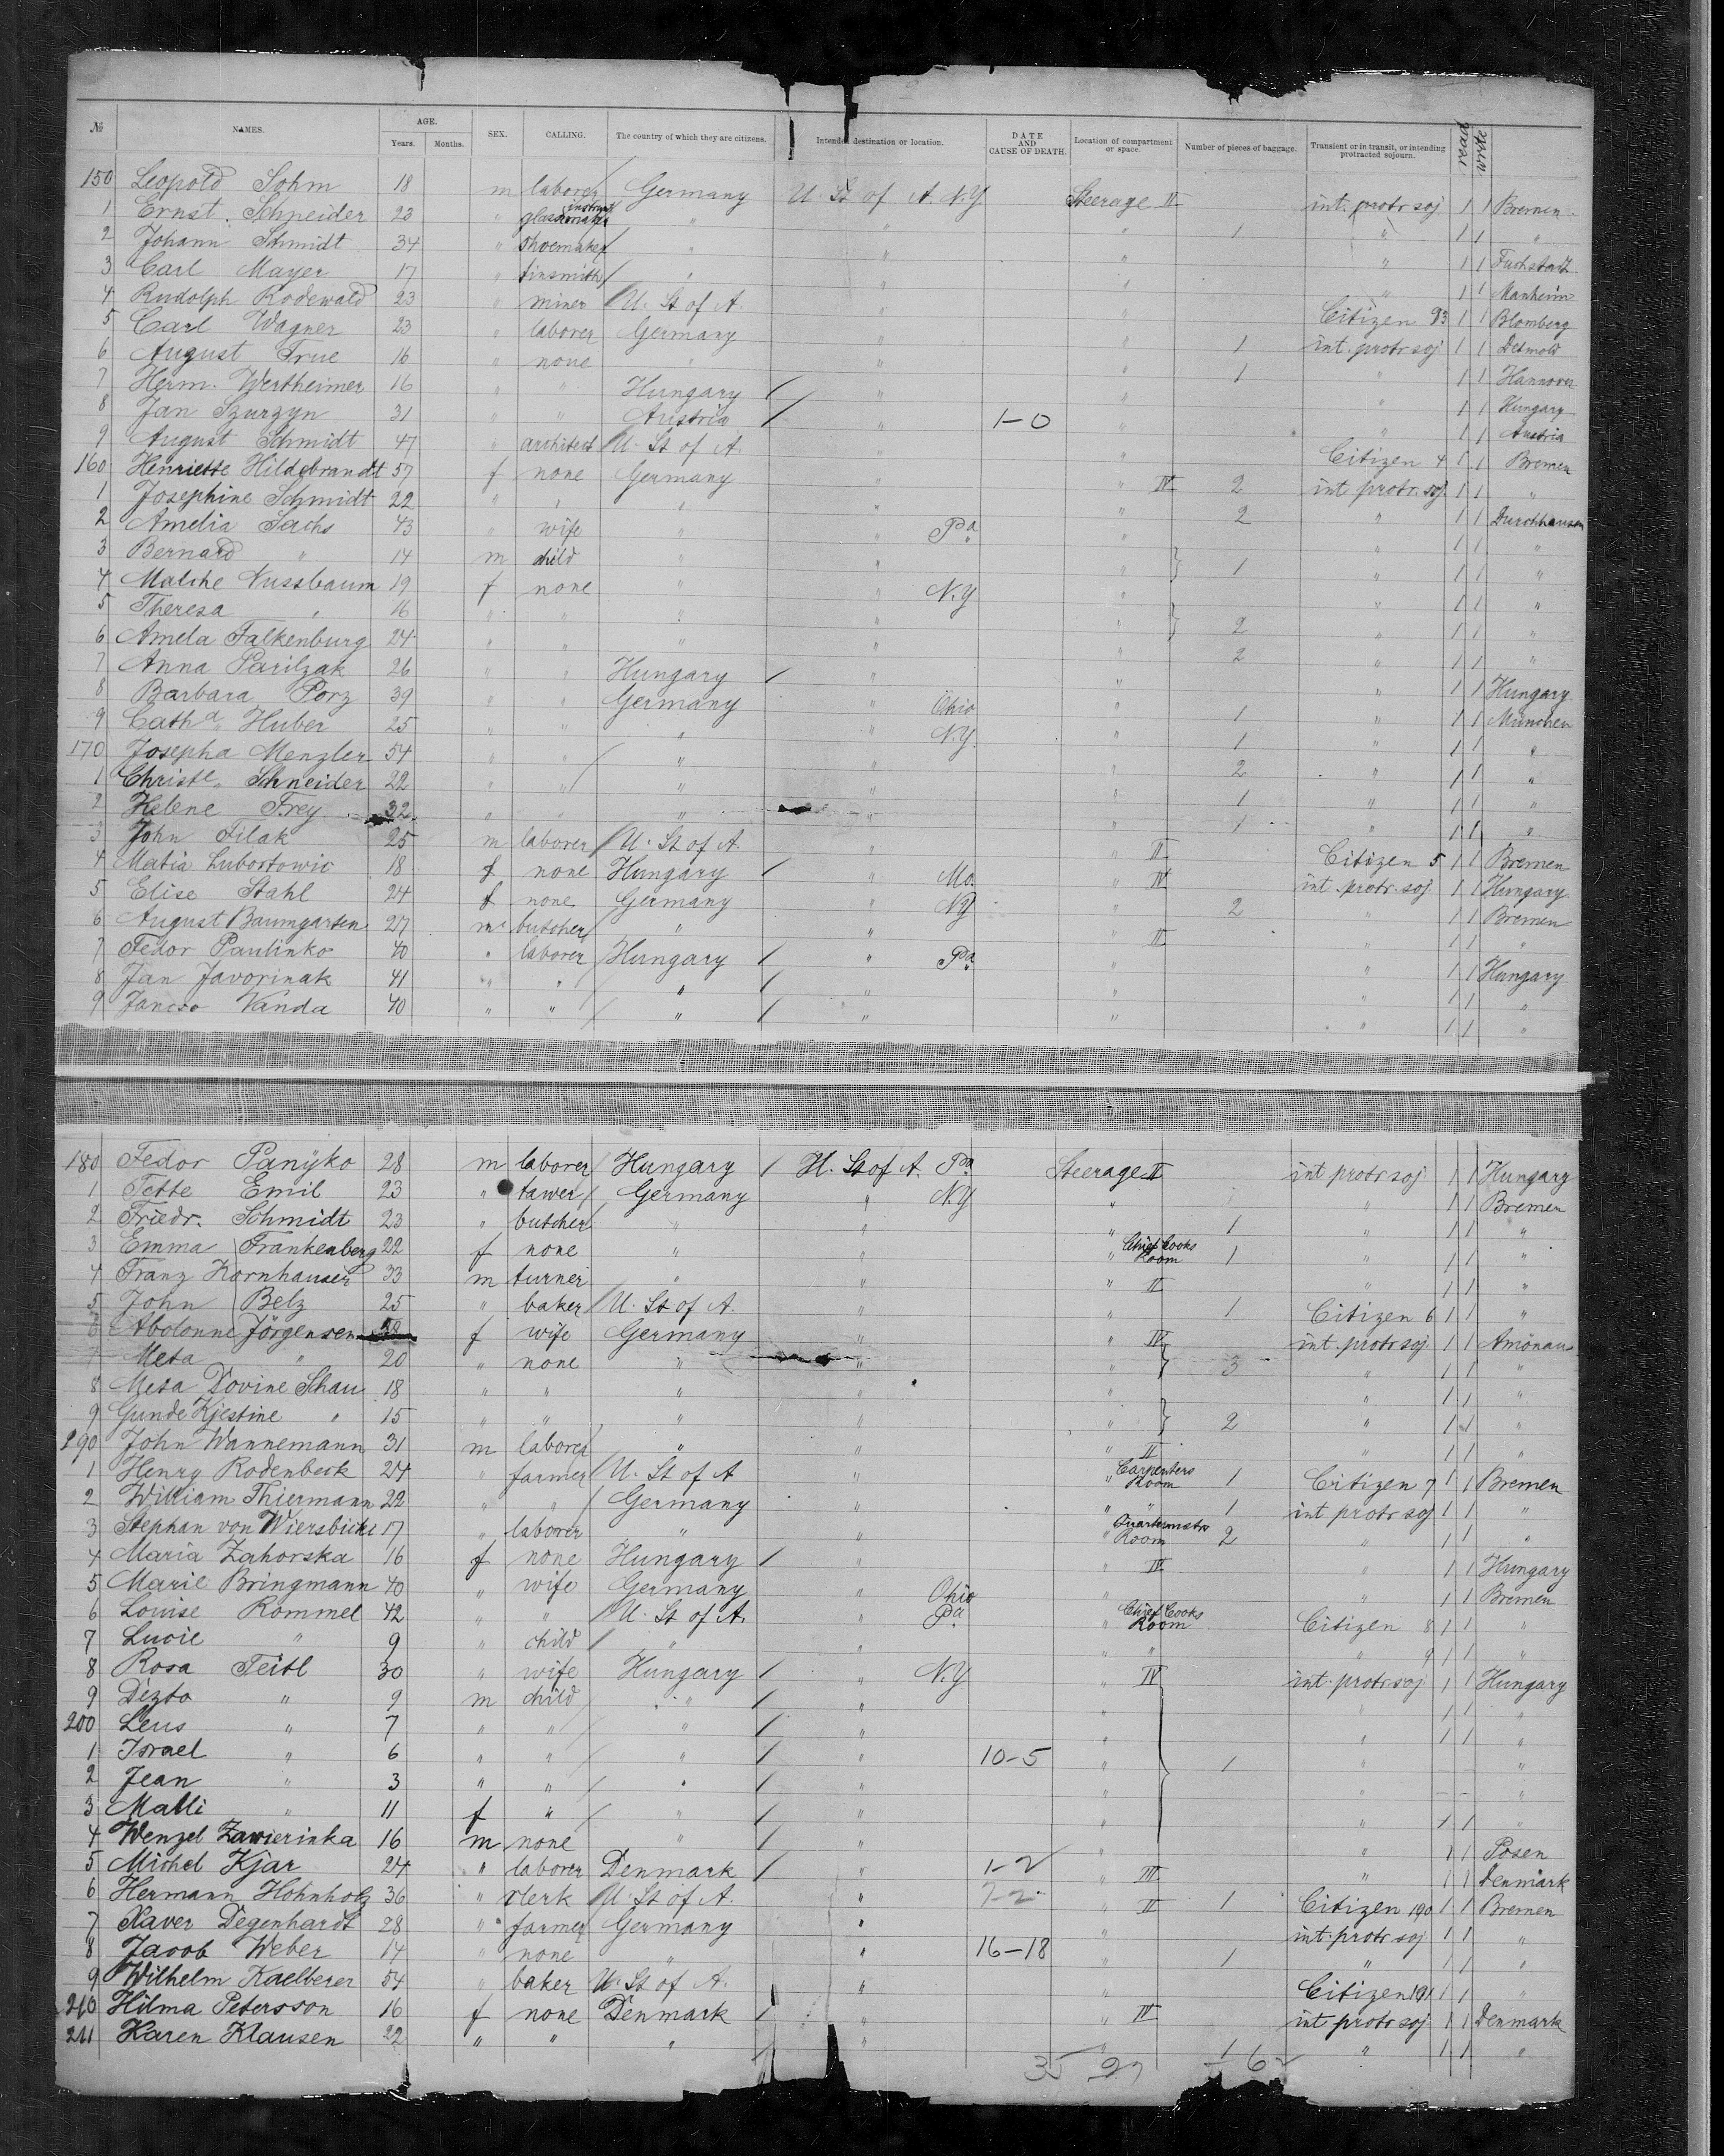 № NAMES. AGE. Years. Months. SEX. CALLING. The country of which they are citizens. Intended destination or location. DATE AND CAUSE OF DEATH. Location of compartment or space. Number of pieces of baggage. Transient or in transit, or intending protracted sojourn. read write
150 Leopold Sohm 18 m laborer Germany U St of A. N.Y Steerage II int. protr soj 1 1 Bremen
1 Ernst Schneider 23 " " " " 1 " 1 1 "
2 Johann Schmidt 34 " shoemaker " " " " 1 1 Fuchstadt
3 Carl Mayer 17 " tinsmith " " " " 1 1 Manheim
4 Rudolph Rodewald 23 " miner U. St of A. " " Citizen 93 1 1 Blomberg
5 Carl Wagner 23 " laborer Germany " " 1 int. protr soj 1 1 Detmold
6 August True 16 " none " " " 1 " 1 1 Hannover
7 Herm. Wertheimer 16 " " Hungary / " " " 1 1 Hungary
8 Jan Szurzyn 31 " " Austria / " 1-0 " " 1 1 Austria
9 August Schmidt 47 " architect U. St of A. " " Citizen 4 1 1 Bremen
160 Henriette Hildebrandt 57 f none Germany " " IV 2 int protr. soj. 1 1 "
1 Josephine Schmidt 22 " " " " " 2 " 1 1 Durchhausen
2 Amelia Sachs 43 " wife " " Pa " " 1 1 "
3 Bernard " 14 m child " " " " 1 " 1 1 "
4 Malche Nussbaum 19 f none " " N.Y " " 1 1 "
5 Theresa " 16 " " " " " 2 " 1 1 "
6 Amela Falkenburg 24 " " " " " 2 " 1 1 "
7 Anna Parilzak 26 " " Hungary / " " " 1 1 Hungary
8 Barbara Porz 39 " " Germany " Ohio " 1 " 1 1 München
9 Catha Huber 25 " " " " N.Y. " 1 " 1 1 "
170 Josepha Menzler 54 " " / " " " 2 " 1 1 "
1 Christe. Schneider 22 " " / " " " 1 " 1 1 "
2 Helene Frey 32 " " " " " 1 " 1 1 "
3 John Filak 25 m laborer U. St of A. " " II Citizen 5 1 1 Bremen
4 Matia Lubostowic 18 f none Hungary / " Mo. " IV int. protr. soj. 1 1 Hungary
5 Elise Stahl 24 f none Germany " NY " 2 " 1 1 Bremen
6 August Baumgarten 27 m butcher " " " II " 1 1 "
7 Fedor Paulinko 40 " laborer Hungary / " Pa. " " 1 1 Hungary
8 Jan Javorinak 41 " " / " / " " " 1 1 "
9 Jancso Vanda 40 " " / " / " " " 1 1 "
180 Fedor Panÿko 28 m laborer Hungary / U. St of A. Pa Steerage II int protr soj 1 1 Hungary
1 Tette Emil 23 " tawer Germany " N.Y " " 1 1 Bremen
2 Friedr. Schmidt 23 " butcher " " " 1 " 1 1 "
3 Emma Frankenberg 22 f none " " " Chief Cooks Room 1 " 1 1 "
4 Franz Kornhauser 33 m turner " " " II " 1 1 "
5 John Belz 25 " baker U. St of A. " " 1 Citizen 6 1 1 "
6 Abolonne Jörgensen f wife Germany " " IV int. protr soj. 1 1 Amönau
7 Meta " 20 " none " " " 3 " 1 1 "
8 Meta Dovine Schau 18 " " " " " " 1 1 "
9 Gunde Kjestine " 15 " " " " " 2 " 1 1 "
190 John Wannemann 31 m laborer " " " II " 1 1 "
1 Henry Rodenbeck 24 " farmer U. St of A " " Carpenters Room 1 Citizen 7 1 1 Bremen
2 William Thiermann 22 " " / Germany " " " 1 int protr soj 1 1 "
3 Stephan von Wiersbicki 17 " laborer " " " Quartermstrs Room 2 " 1 1 "
4 Maria Zahorska 16 f none Hungary / " " IV " 1 1 Hungary
5 Marie Bringmann 40 " wife Germany " Ohio " " 1 1 Bremen
6 Louise Rommel 42 " " U. St of A. " Pa. " Chief Cooks Room Citizen 8 1 1 "
7 Lucie " 9 " child / " " " " " 9 1 1 "
8 Rosa Teitl 30 " wife Hungary / " N.Y " IV int. protr soj 1 1 Hungary
9 Dezto " 9 m child / " / " " " 1 1 "
200 Leus " 7 " " / " / " " " 1 1 "
1 Israel " 6 " " / " / " 10-5 " 1 " - - "
2 Jean " 3 " " / " / " " " - - "
3 Malli " 11 f " / " / " " " 1 1 "
4 Wenzel Zawierinka 16 m none " / " " " 1 1 Posen
5 Michel Kjar 24 " laborer Denmark / " 1-2 " III " 1 1 Denmark
6 Hermann Hohnholz 36 " clerk U. St of A. " 7-2 " II 1 Citizen 190 1 1 Bremen
7 Xaver Degenhardt 28 " farmer Germany " " int. protr soj 1 1 "
8 Jacob Weber 14 " none " " 16-18 " 1 " 1 1 "
9 Wilhelm Kaelberer 54 " baker U. St of A. " " Citizen 191 1 1 "
210 Hilma Petersson 16 f none Denmark / " " IV int protr soj 1 1 Denmark
211 Karen Klausen 22 " " " / " " " 1 1 "